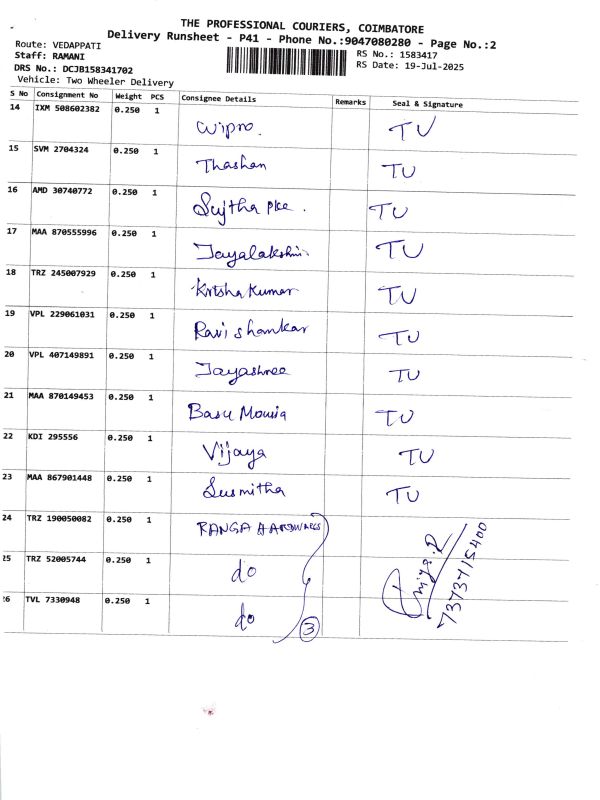 THE PROFESSIONAL COURIERS, COIMBATORE
Delivery Runsheet - P41 - Phone No.:9047080280 - Page No.:2
Route: VEDAPPATI
Staff: RAMANI
DRS No.: DCJB158341702
Vehicle: Two Wheeler Delivery
RS No.: 1583417
RS Date: 19-Jul-2025
S No Consignment No Weight PCS Consignee Details Remarks Seal & Signature
14 IXM 508602382 0.250 1 Wipro. TU
15 SVM 2704324 0.250 1 Thashan TU
16 AMD 30740772 0.250 1 Sujtha TU
17 MAA 870555996 0.250 1 Jayalakshmi TU
18 TRZ 245007929 0.250 1 Krtsha Kumar TU
19 VPL 229061031 0.250 1 Ravi shankar TU
20 VPL 407149891 0.250 1 Jayashree TU
21 MAA 870149453 0.250 1 Basu TU
22 KDI 295556 0.250 1 Vijaya TU
23 MAA 867901448 0.250 1 Susmitha TU
24 TRZ 190050082 0.250 1 RANGA HARDWARES
25 TRZ 52005744 0.250 1 do
26 TVL 7330948 0.250 1 do
3
7373715400